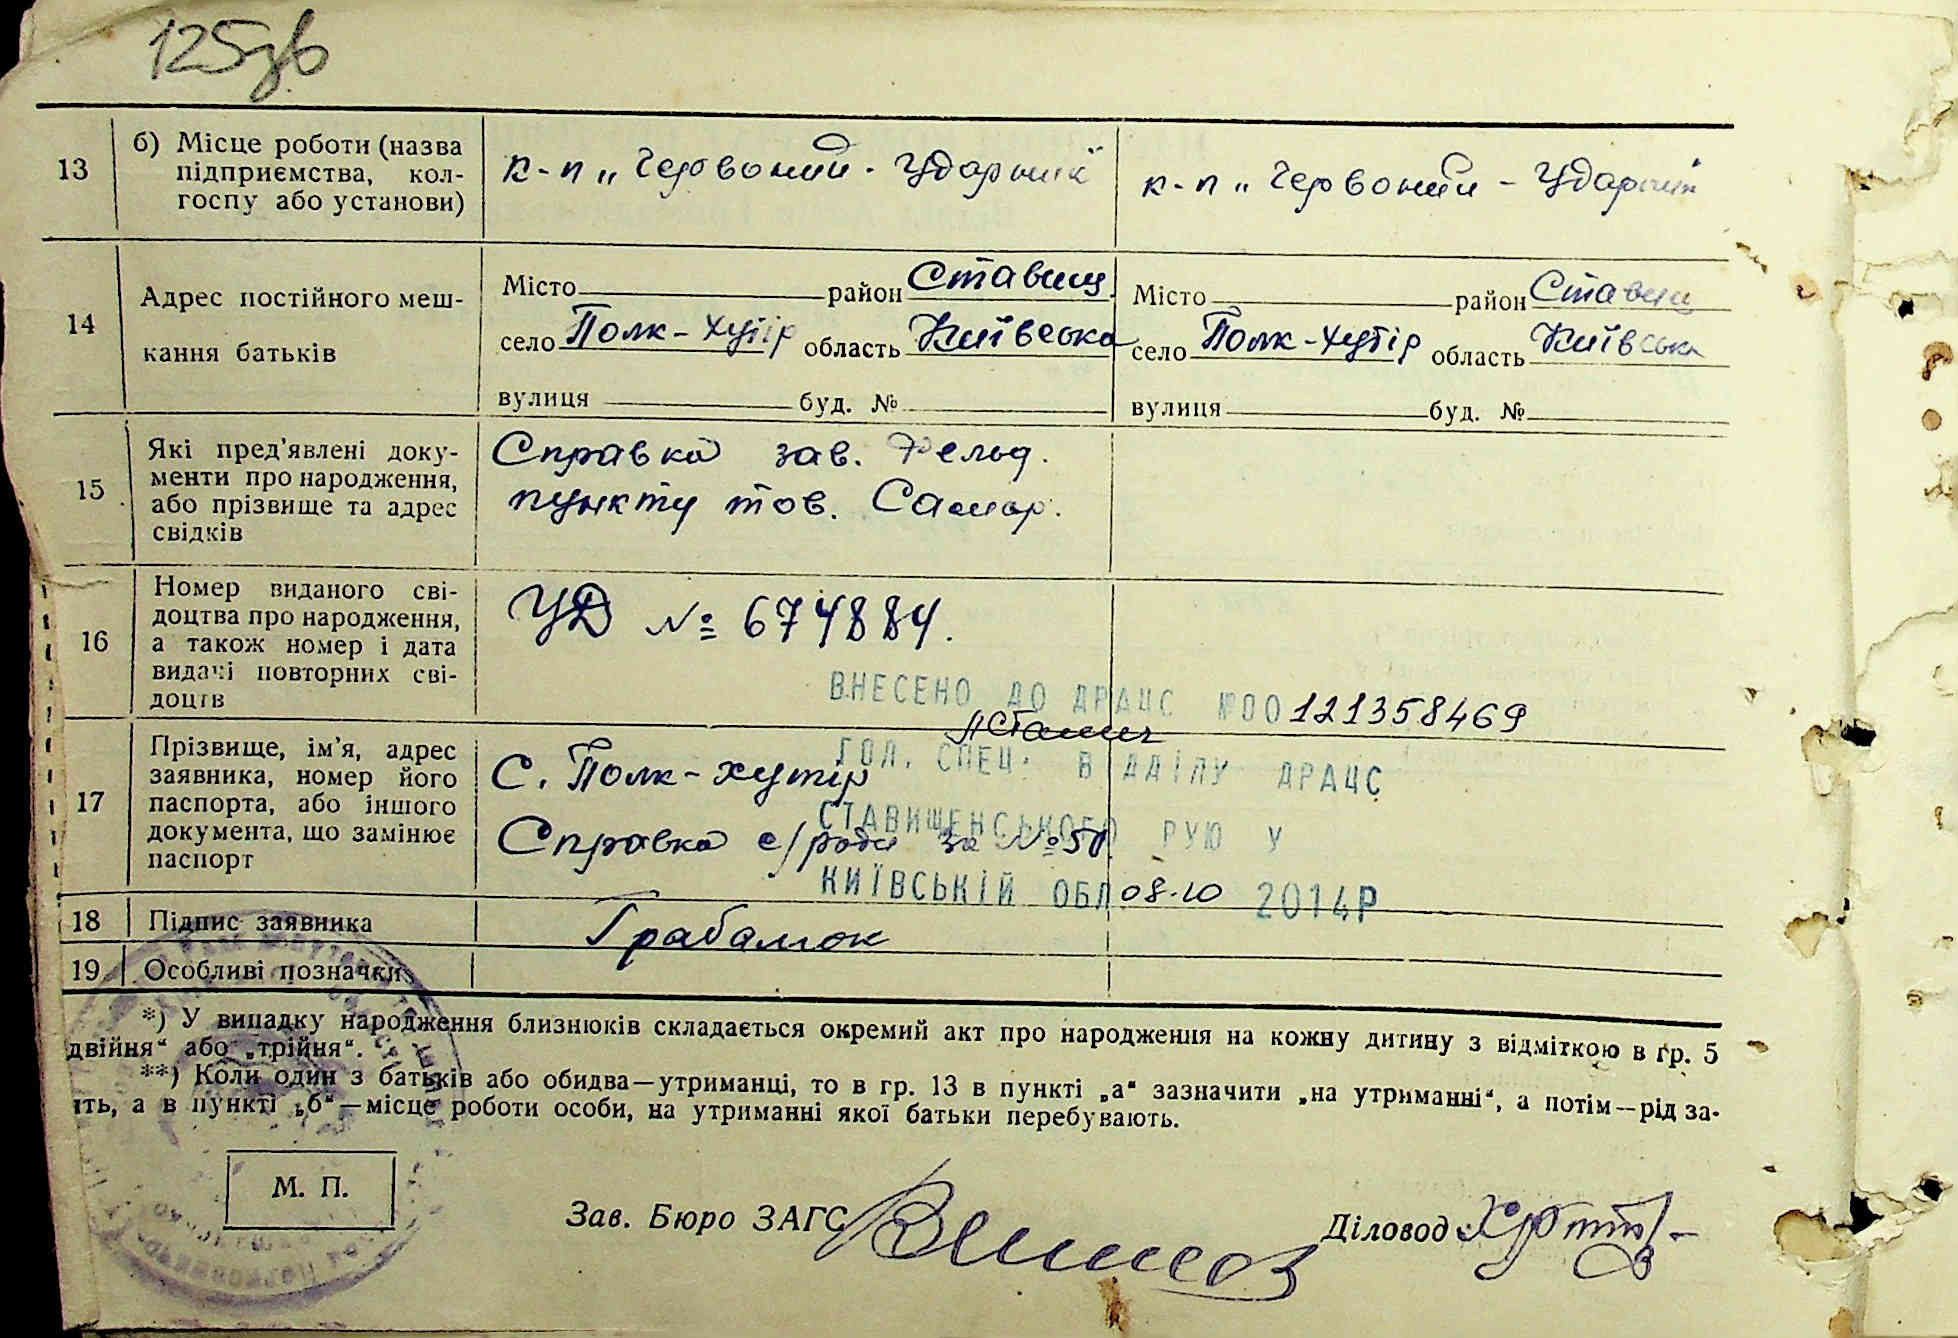 125зв
13
б) Місце роботи (назва
підприємства, кол-
госпу або установи)
к-п „Червоний-Ударник"
к-п „Червоний-Ударник"
14
Адрес постійного меш-
кання батьків
Місто район Ставищ
село Полк-Хутір область Київська
вулиця буд. №
Місто район Ставищ
село Полк-Хутір область Київська
вулиця буд. №
15
Які пред'явлені доку-
менти про народження,
або прізвище та адрес
свідків
Справка зав. Фельд.
пункту тов. Самор.
16
Номер виданого сві-
доцтва про народження,
а також номер і дата
видачі повторних сві-
доцтв
УД № 674884.
ВНЕСЕНО ДО ДРАЦС №00121358469
17
Прізвище, ім'я, адрес
заявника, номер його
паспорта, або іншого
документа, що замінює
паспорт
С. Полк-хутір
Справка с/ради за №50
ГОЛ. СПЕЦ. ВІДДІЛУ ДРАЦС
СТАВИЩЕНСЬКОГО РУЮ У
КИЇВСЬКІЙ ОБЛ 08.10 2014Р
18
Підпис заявника
Грабалюк
19
Особливі позначки
*) У випадку народження близнюків складається окремий акт про народження на кожну дитину з відміткою в гр. 5
двійня" або „трійня".
**) Коли один з батьків або обидва—утриманці, то в гр. 13 в пункті „а" зазначити „на утриманні", а потім—рід за-
ять, а в пункті „б"—місце роботи особи, на утриманні якої батьки перебувають.
М. П.
Зав. Бюро ЗАГС
Діловод